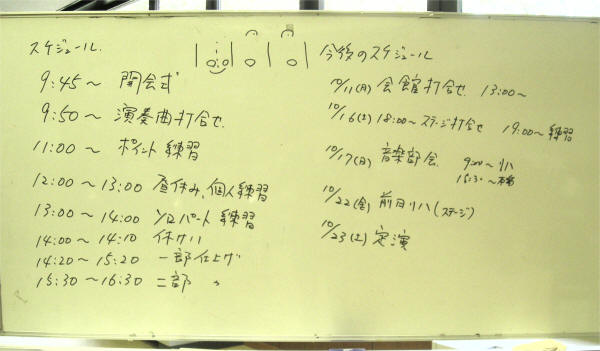 スケジュール.
9:45〜 開会式
9:50〜 演奏曲打合せ
11:00〜 ポイント練習
12:00〜13:00 昼休み、個人練習
13:00〜14:00 ソロパート練習
14:00〜14:10 休ケイ
14:20〜15:20 一部仕上げ
15:30〜16:30 二部 〃
今後のスケジュール
10/11(月) 会館打合せ 13:00〜
10/16(土) 18:00〜ステージ打合せ 19:00〜練習
10/17(日) 音楽部会 9:00〜リハ
15:30〜本番
10/22(金) 前日リハ(ステージ)
10/23(土) 定演